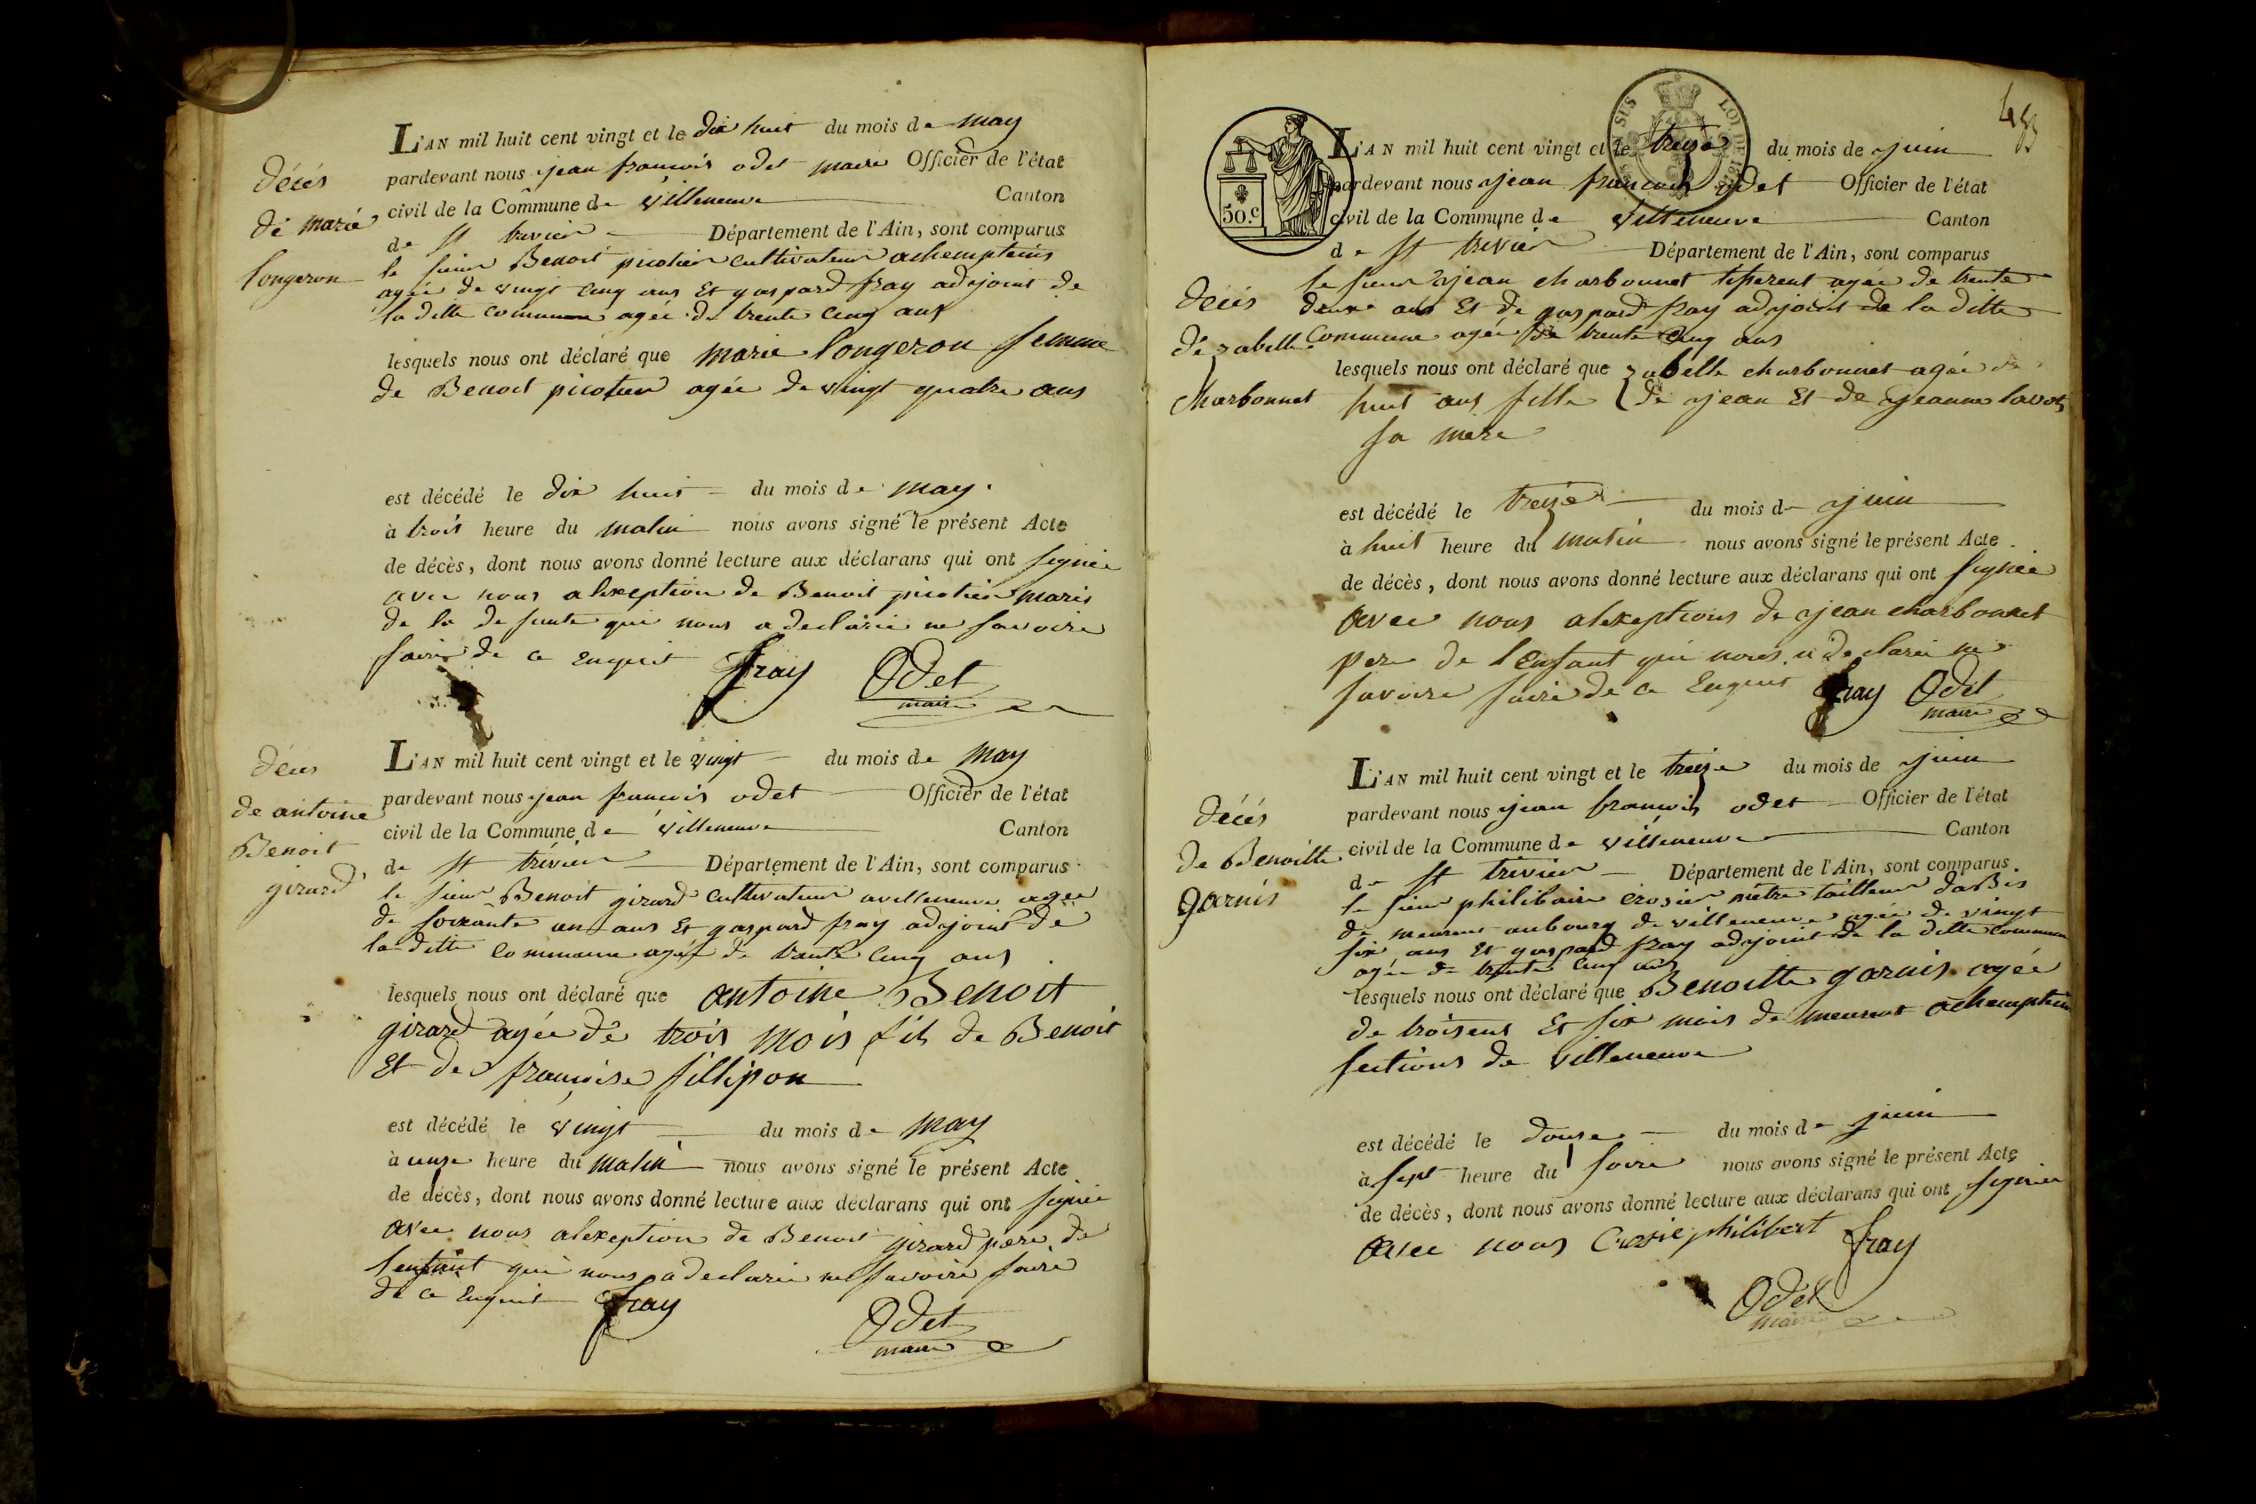 décés
de marie
longeron
L'AN mil huit cent vingt et le dix huit du mois de may
pardevant nous jean francois odet maire Officier de l'état
civil de la Commune de villeneuve Canton
de st trivier Département de l'Ain, sont comparus
le sieur Benoit picotier cultivateur achempteins
agée de vingt cinq ans Et gaspard fray adjoint de
la ditte commune agée de trente cinq ans
lesquels nous ont déclaré que marie longeron femme
de Benoit picotier agée de vingt quatre ans
est décédé le dix huit du mois de may
à trois heure du matin nous avons signé le présent Acte
de décès, dont nous avons donné lecture aux déclarans qui ont signée
avec nous alexeption de Benoit picotier maris
de la defunte qui nous a declarée ne savoire
faire de ce enquit fray Odet
maire
décés
de antoine
Benoit
girard
L'AN mil huit cent vingt et le vingt du mois de may
pardevant nous jean francois odet Officier de l'état
civil de la Commune de villeneuve Canton
de st trivier Département de l'Ain, sont comparus
le sieur Benoit girard cultivateur avilleneuve agée
de soixante un ans Et gaspard fray adjoint de
la ditte commune agée de trente cinq ans
lesquels nous ont déclaré que antoine Benoit
girard agée de trois mois fils de Benoit
Et de francoise fillipon
est décédé le vingt du mois de may
à unze heure du matin nous avons signé le présent Acte
de décès, dont nous avons donné lecture aux déclarans qui ont signée
avec nous alexeption de Benoit girard pere de
lenfant qui nous a declarée ne savoire faire
de ce Enquit fray Odet
maire
50.c
LOI DE
L'AN mil huit cent vingt et le treize du mois de juin
pardevant nous jean francois odet Officier de l'état
civil de la Commune de villeneuve Canton
de st trivier Département de l'Ain, sont comparus
décés
de zabelle
charbonnet
le sieur jean charbonnet tisserent agée de trente
deux ans Et de gaspard fray adjoint de la ditte
commune agée de trente cinq ans
lesquels nous ont déclaré que zabelle charbonnet agée de
huit ans fille de jean Et de jeanne
sa mere
est décédé le treize du mois de juin
à huit heure du matin nous avons signé le présent Acte
de décès, dont nous avons donné lecture aux déclarans qui ont signée
avec nous alexeptions de jean charbonnet
pere de lEnfant qui nous a declarée ne
savoire faire de ce Enquit fray Odet
maire
décés
de Benoitte
garnis
L'AN mil huit cent vingt et le treize du mois de juin
pardevant nous jean francois odet Officier de l'état
civil de la Commune de villeneuve Canton
de st trivier Département de l'Ain, sont comparus
le sieur philibaire crosier métre tailleur dabis
de meurent aubourg de villeneuve agée de vingt
six ans Et gaspard fray adjoint de la ditte commune
agée de trente cinq ans
lesquels nous ont déclaré que Benoitte garnis agée
de troisens Et six mois de meurent achempteins
sections de villeneuve
est décédé le douze du mois de juin
à sept heure du soire nous avons signé le présent Acte
de décès, dont nous avons donné lecture aux déclarans qui ont signée
avec nous Crosie philibert fray
Odet
maire